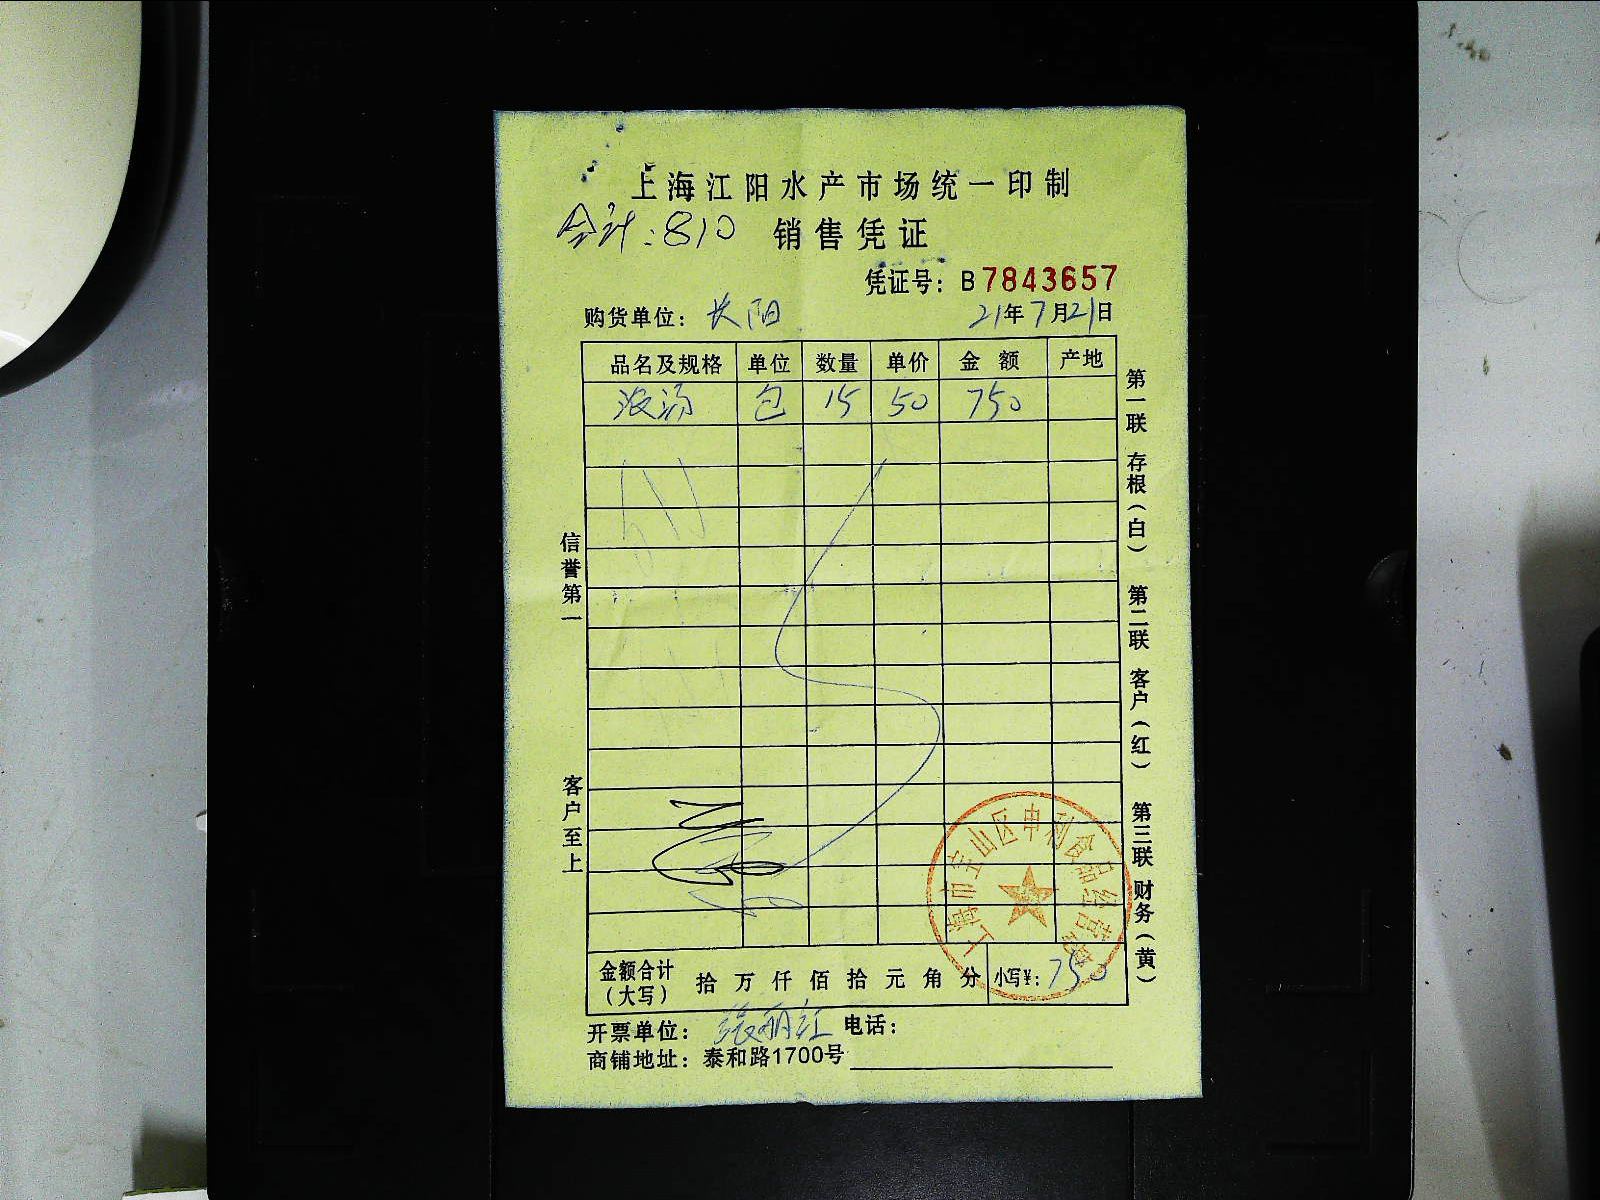 上海江阳水产市场统一印制
合计:810 销售凭证
凭证号: B7843657
购货单位: 长阳 21年7月21日
品名及规格 单位 数量 单价 金额 产地
浓汤 包 15 50 750
信誉第一
客户至上
第一联 存根(白) 第二联 客户(红) 第三联 财务(黄)
上海市宝山区申利食品经营部
金额合计(大写) 拾万仟佰拾元角分 小写¥: 750
开票单位: 张丽红 电话:
商铺地址: 泰和路1700号